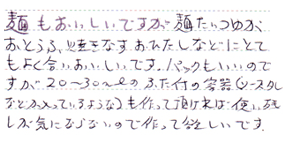 麺もおいしいですが麺たいつゆが、
おとうふ、焼きなす おひたしなどにとて
もよく合いおいしいです。パックもいいので
すが 20〜30~lのふた付の容器(ソースみ
など入っているような)も作って頂ければ使い残
しが気にならないので作って欲しいです。